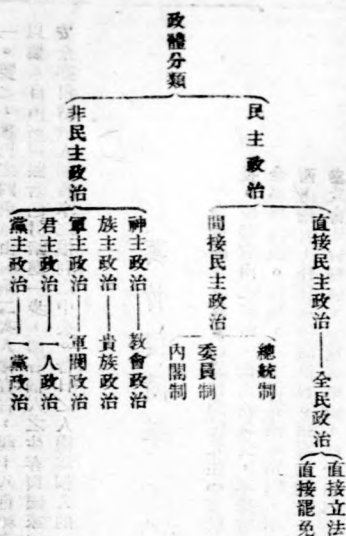 政體分類
民主政治
直接民主政治——全民政治
直接立法
直接罷免
間接民主政治
總統制
委員制
內閣制
非民主政治
神主政治——教會政治
族主政治——貴族政治
軍主政治——軍閥政治
君主政治——一人政治
黨主政治——一黨政治